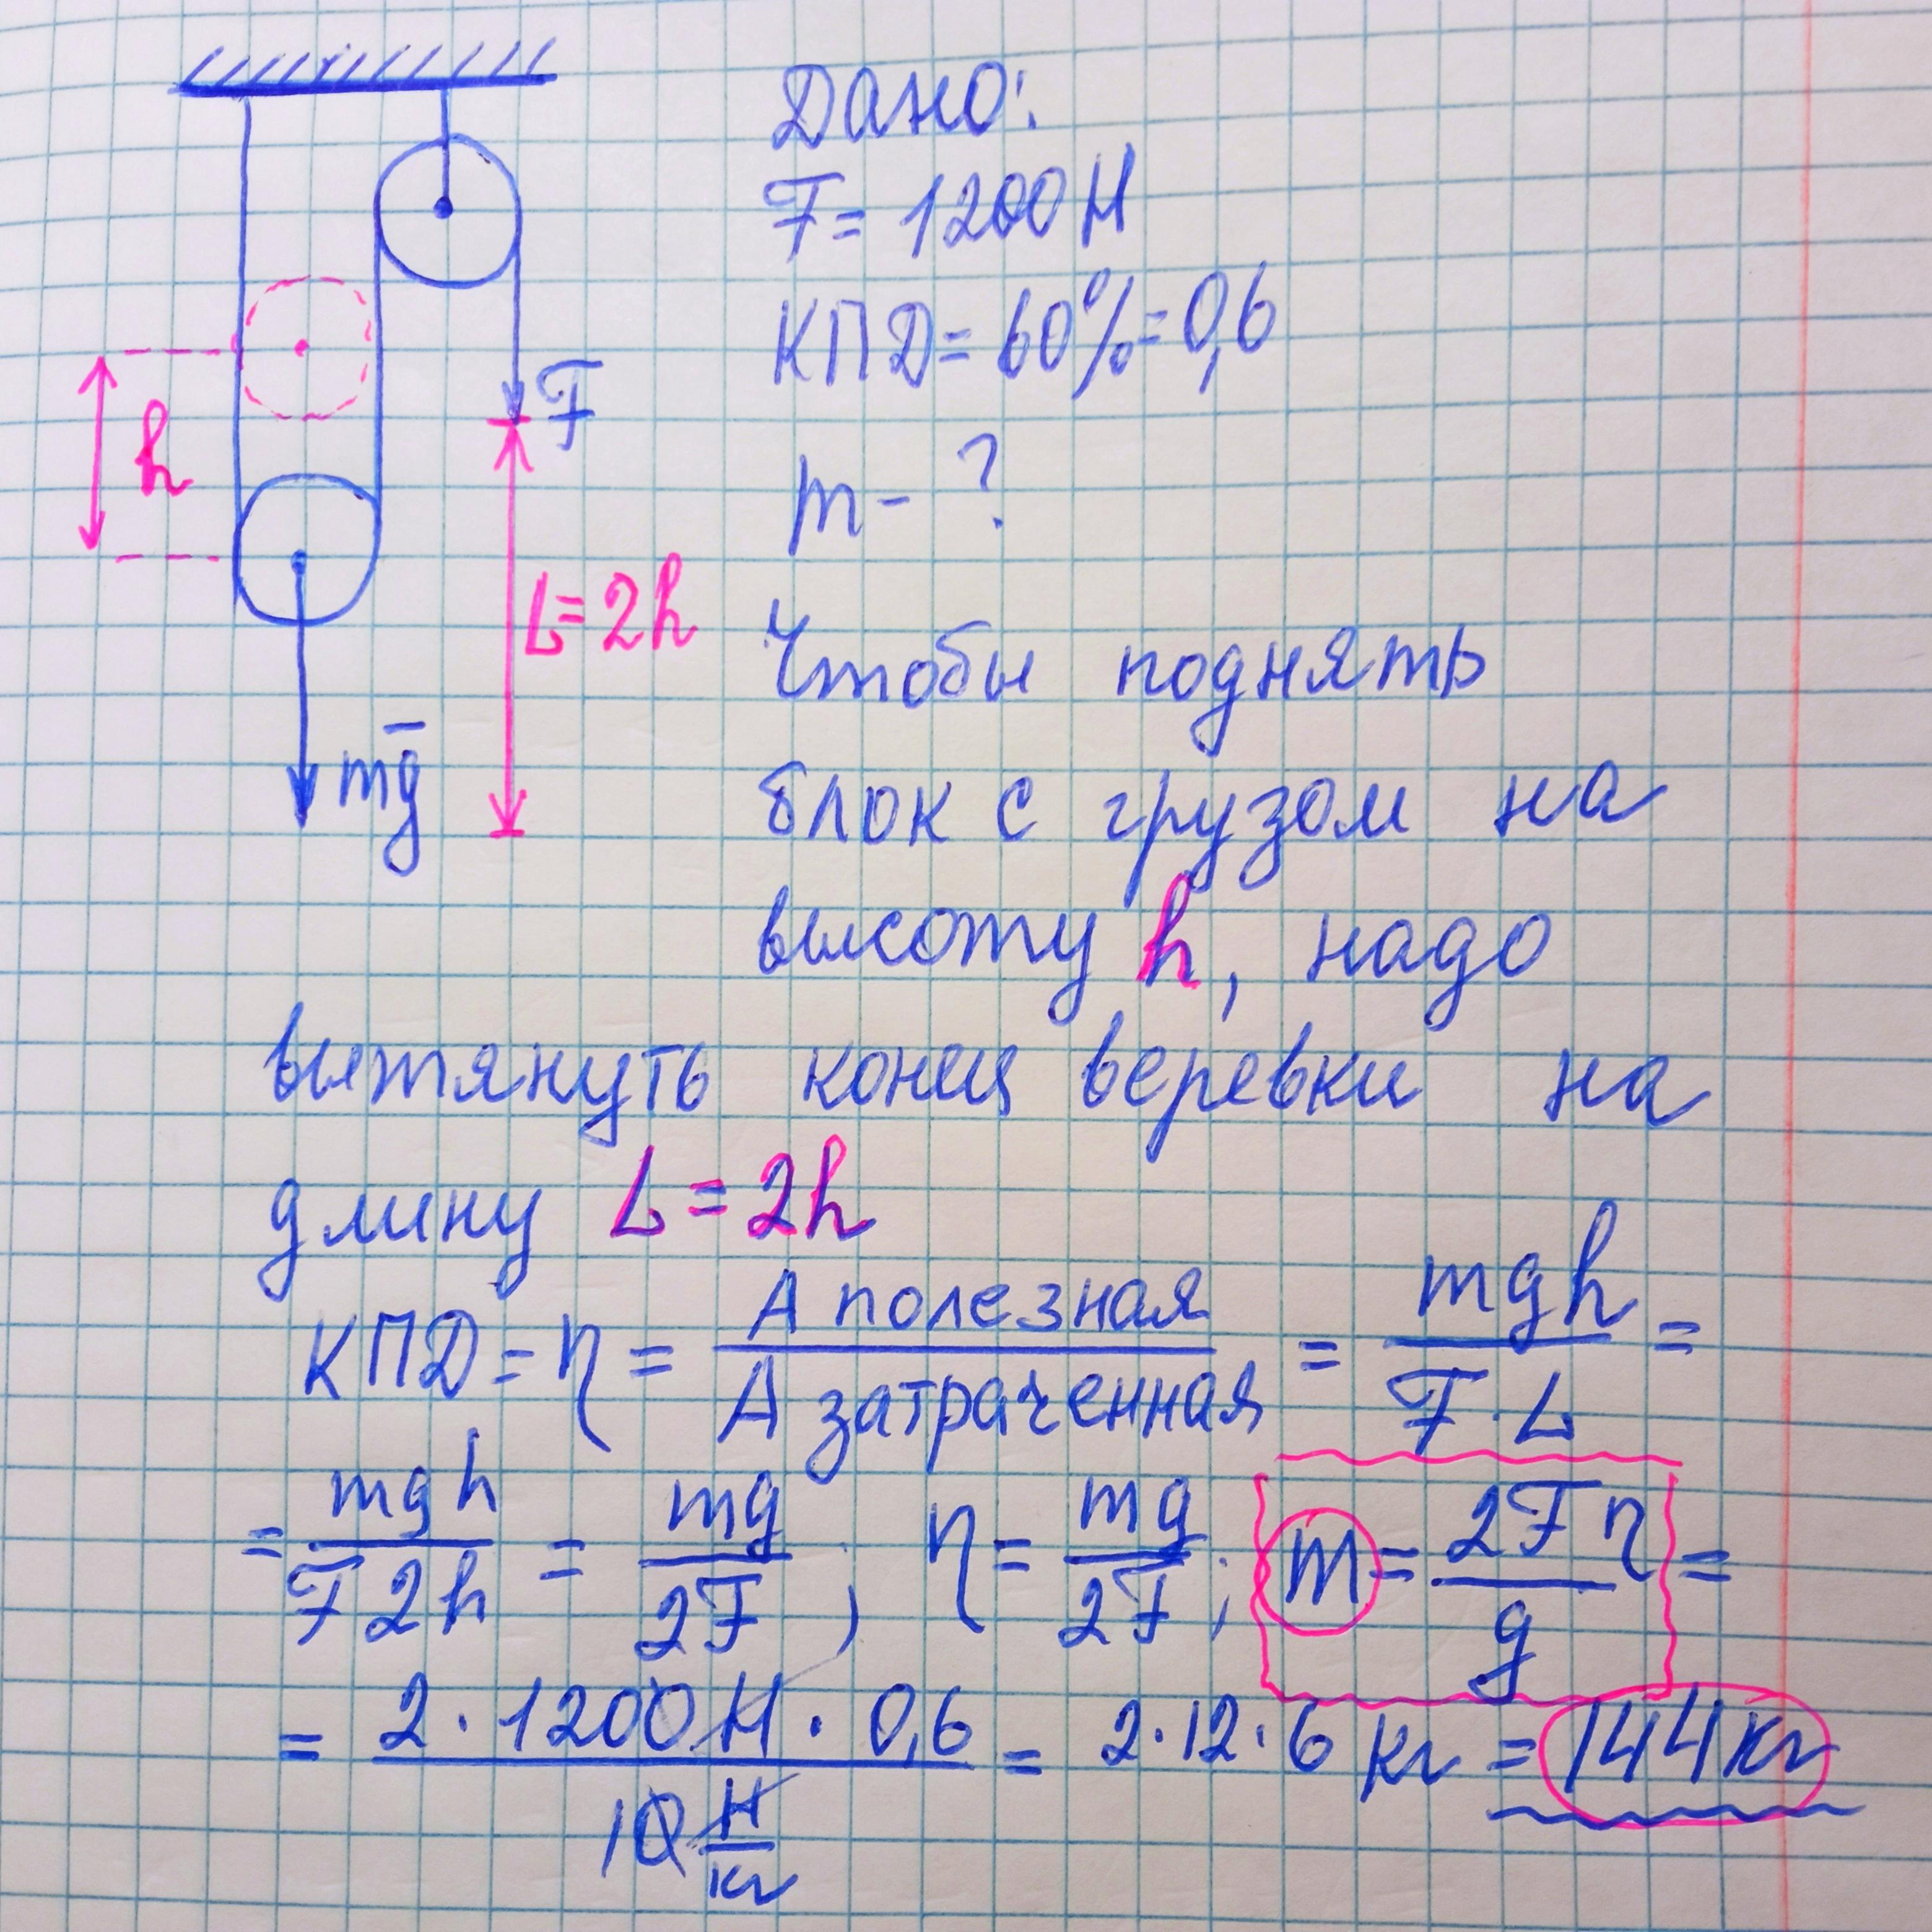 Дано:
F = 1200 Н
КПД = 60% = 0,6
m - ?
h
F
L = 2h
mg̅
Чтобы поднять
блок с грузом на
высоту h, надо
вытянуть конец веревки на
длину L = 2h
КПД = η = A полезная / A затраченная = mgh / F · L =
= mgh / F 2h = mg / 2F ; η = mg / 2F ; m = 2Fη / g =
= 2 · 1200 Н · 0,6 / 10 Н/кг = 2·12·6 кг = 144 кг